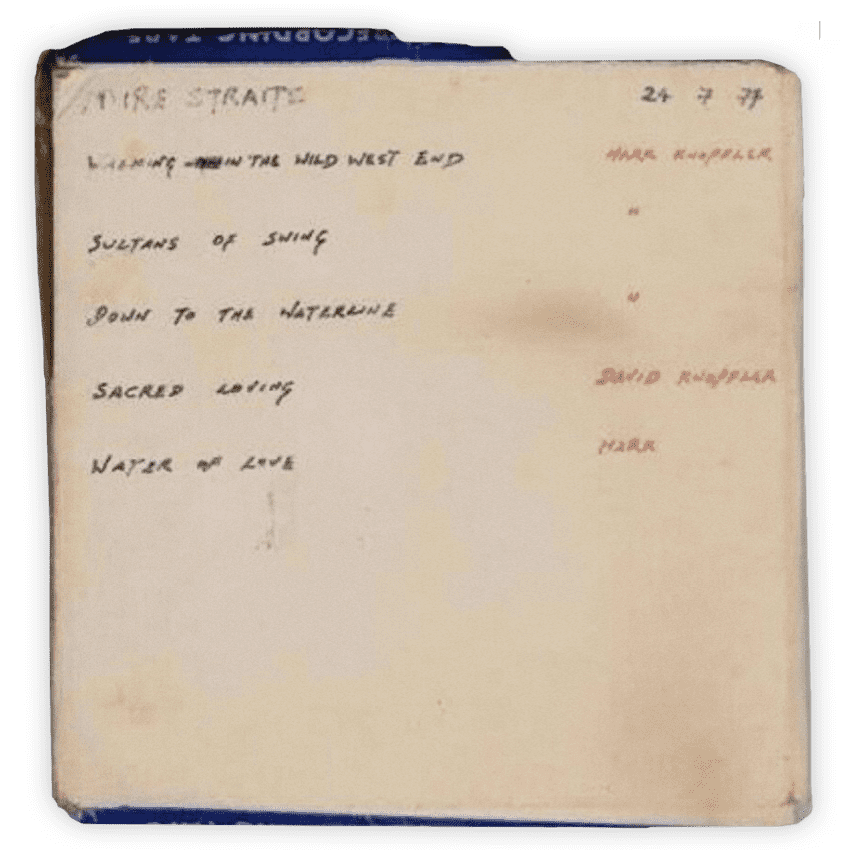 RECORDING TAPE
DIRE STRAITS 24 7 77
WALKING IN THE WILD WEST END MARK KNOPFLER
SULTANS OF SWING "
DOWN TO THE WATERLINE "
SACRED LOVING DAVID KNOPFLER
WATER OF LOVE MARK